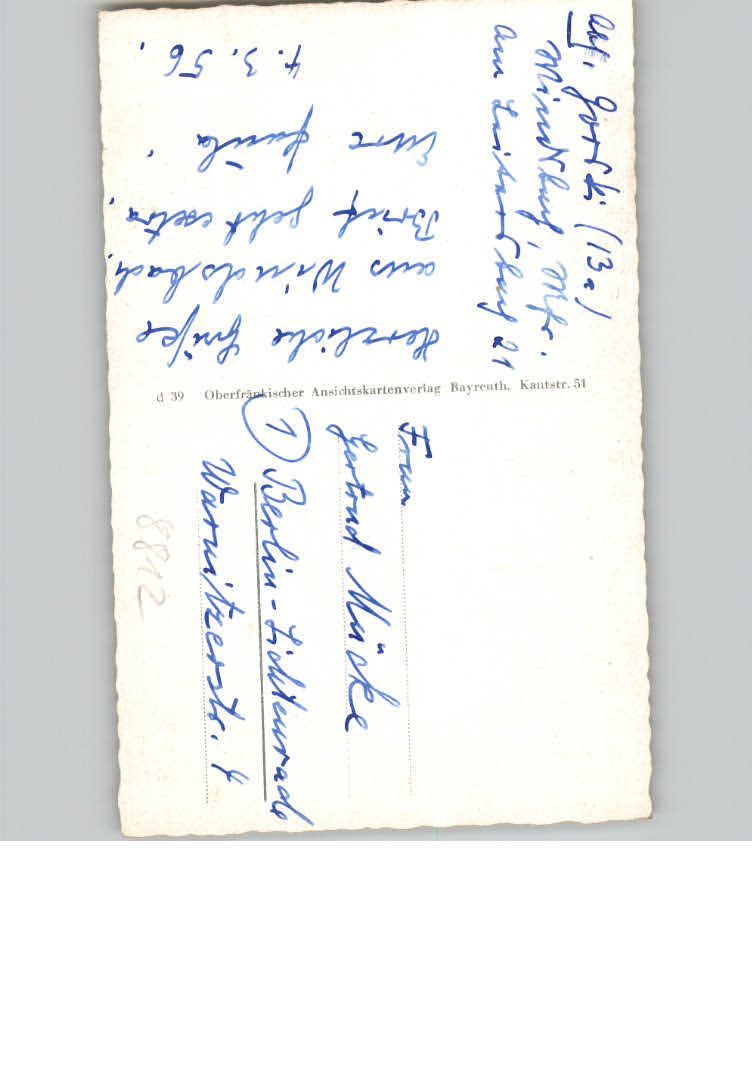 Abs. Goroski (13a)
Windsbach, Mfr.
Am Luitersbuck 21
4.3.56.
Eure Familie.
Brief geht extra.
aus Windsbach.
Herzliche Grüße
d 39 Oberfränkischer Ansichtskartenverlag Bayreuth, Kantstr. 51
Frau
Gertrud Mücke
① Berlin-Lichtenrade
Warnitzerstr. 4
8812